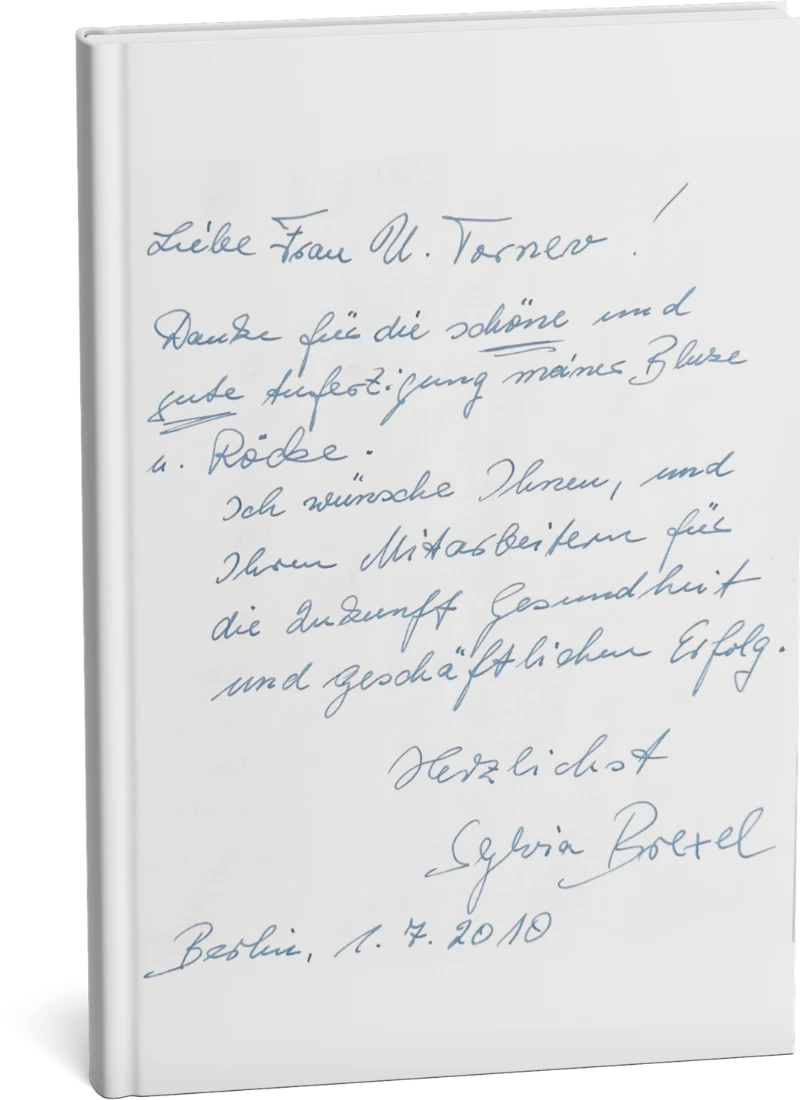 Liebe Frau U. Torner!
Danke für die schöne und
gute Anfertigung meiner Bluse
u. Röcke.
Ich wünsche Ihnen, und
Ihren Mitarbeitern für
die Zukunft Gesundheit
und geschäftlichen Erfolg.
Herzlichst
Sylvia
Berlin, 1.7.2010